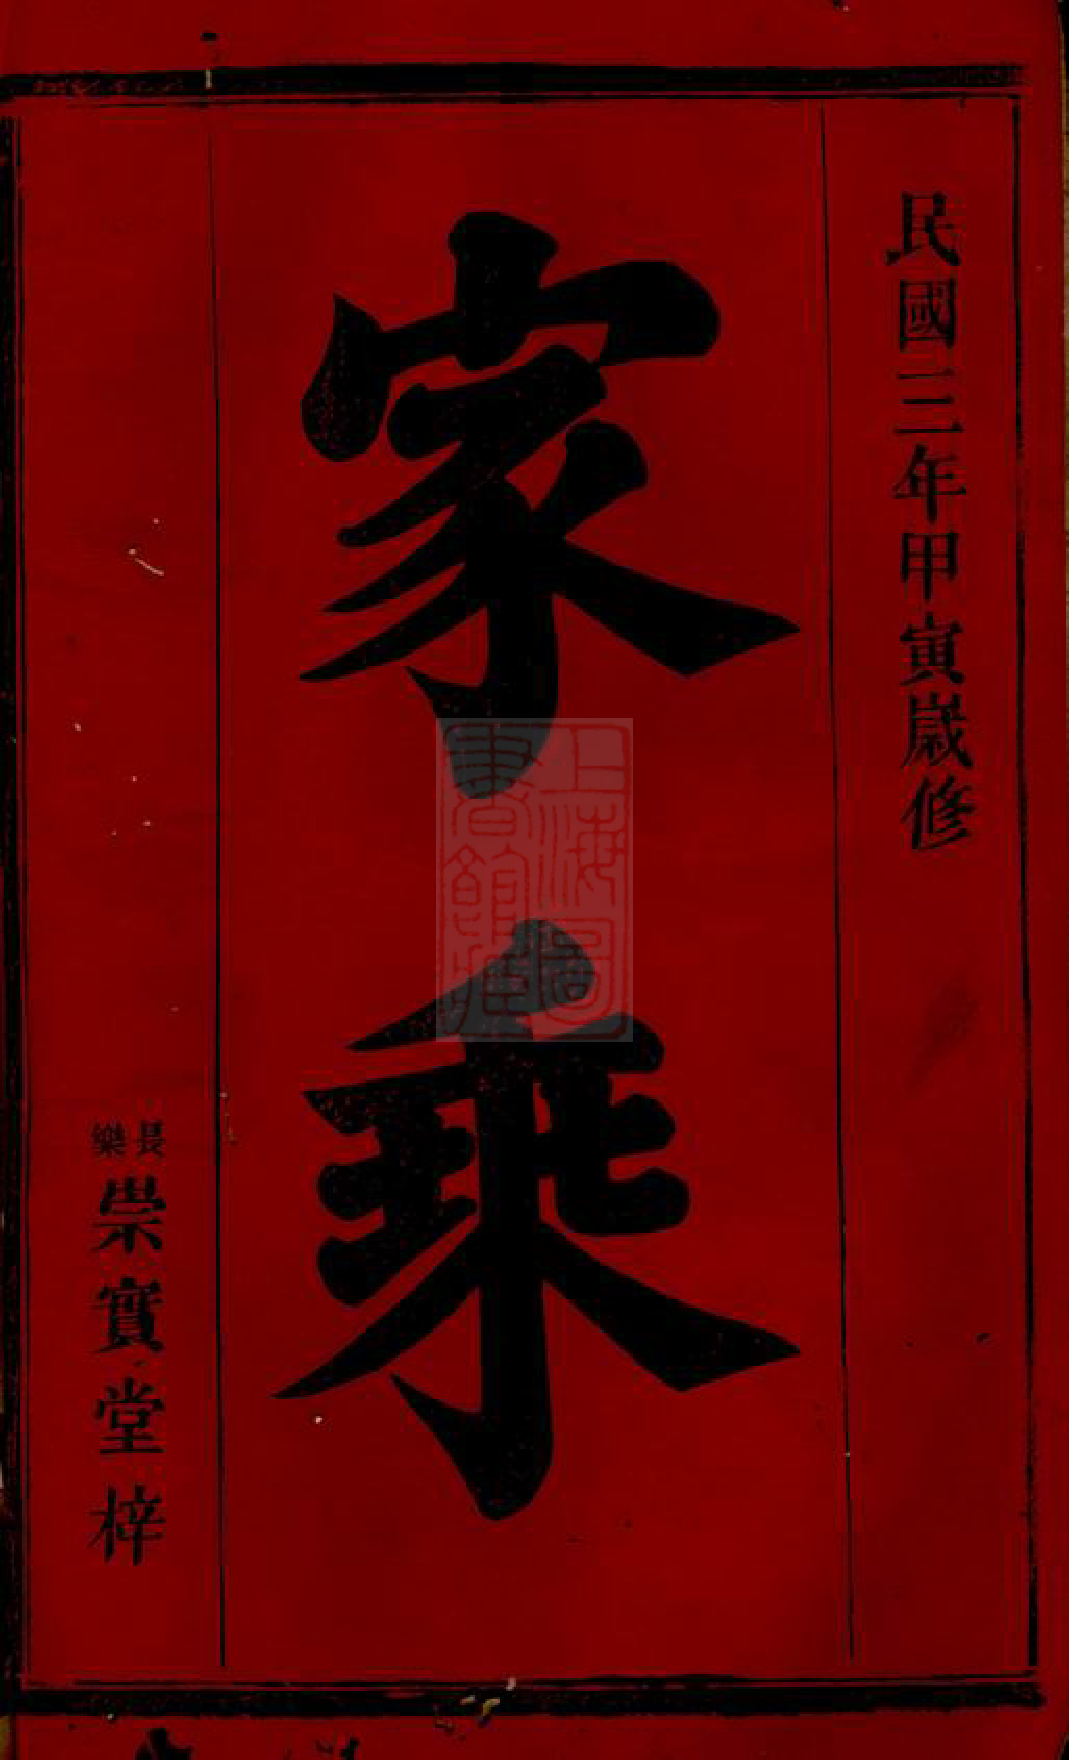 民國三年甲寅歲修
家乘
長樂
崇實堂梓
上海圖書館藏